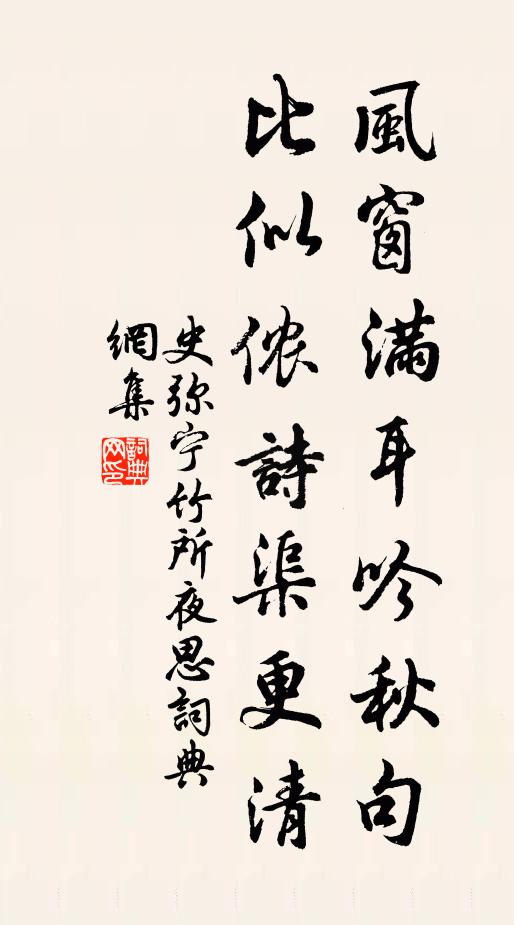 風窗满耳吟秋句
比似侬詩渠更清
史弥宁竹所夜思詞典
網集
詞典网印